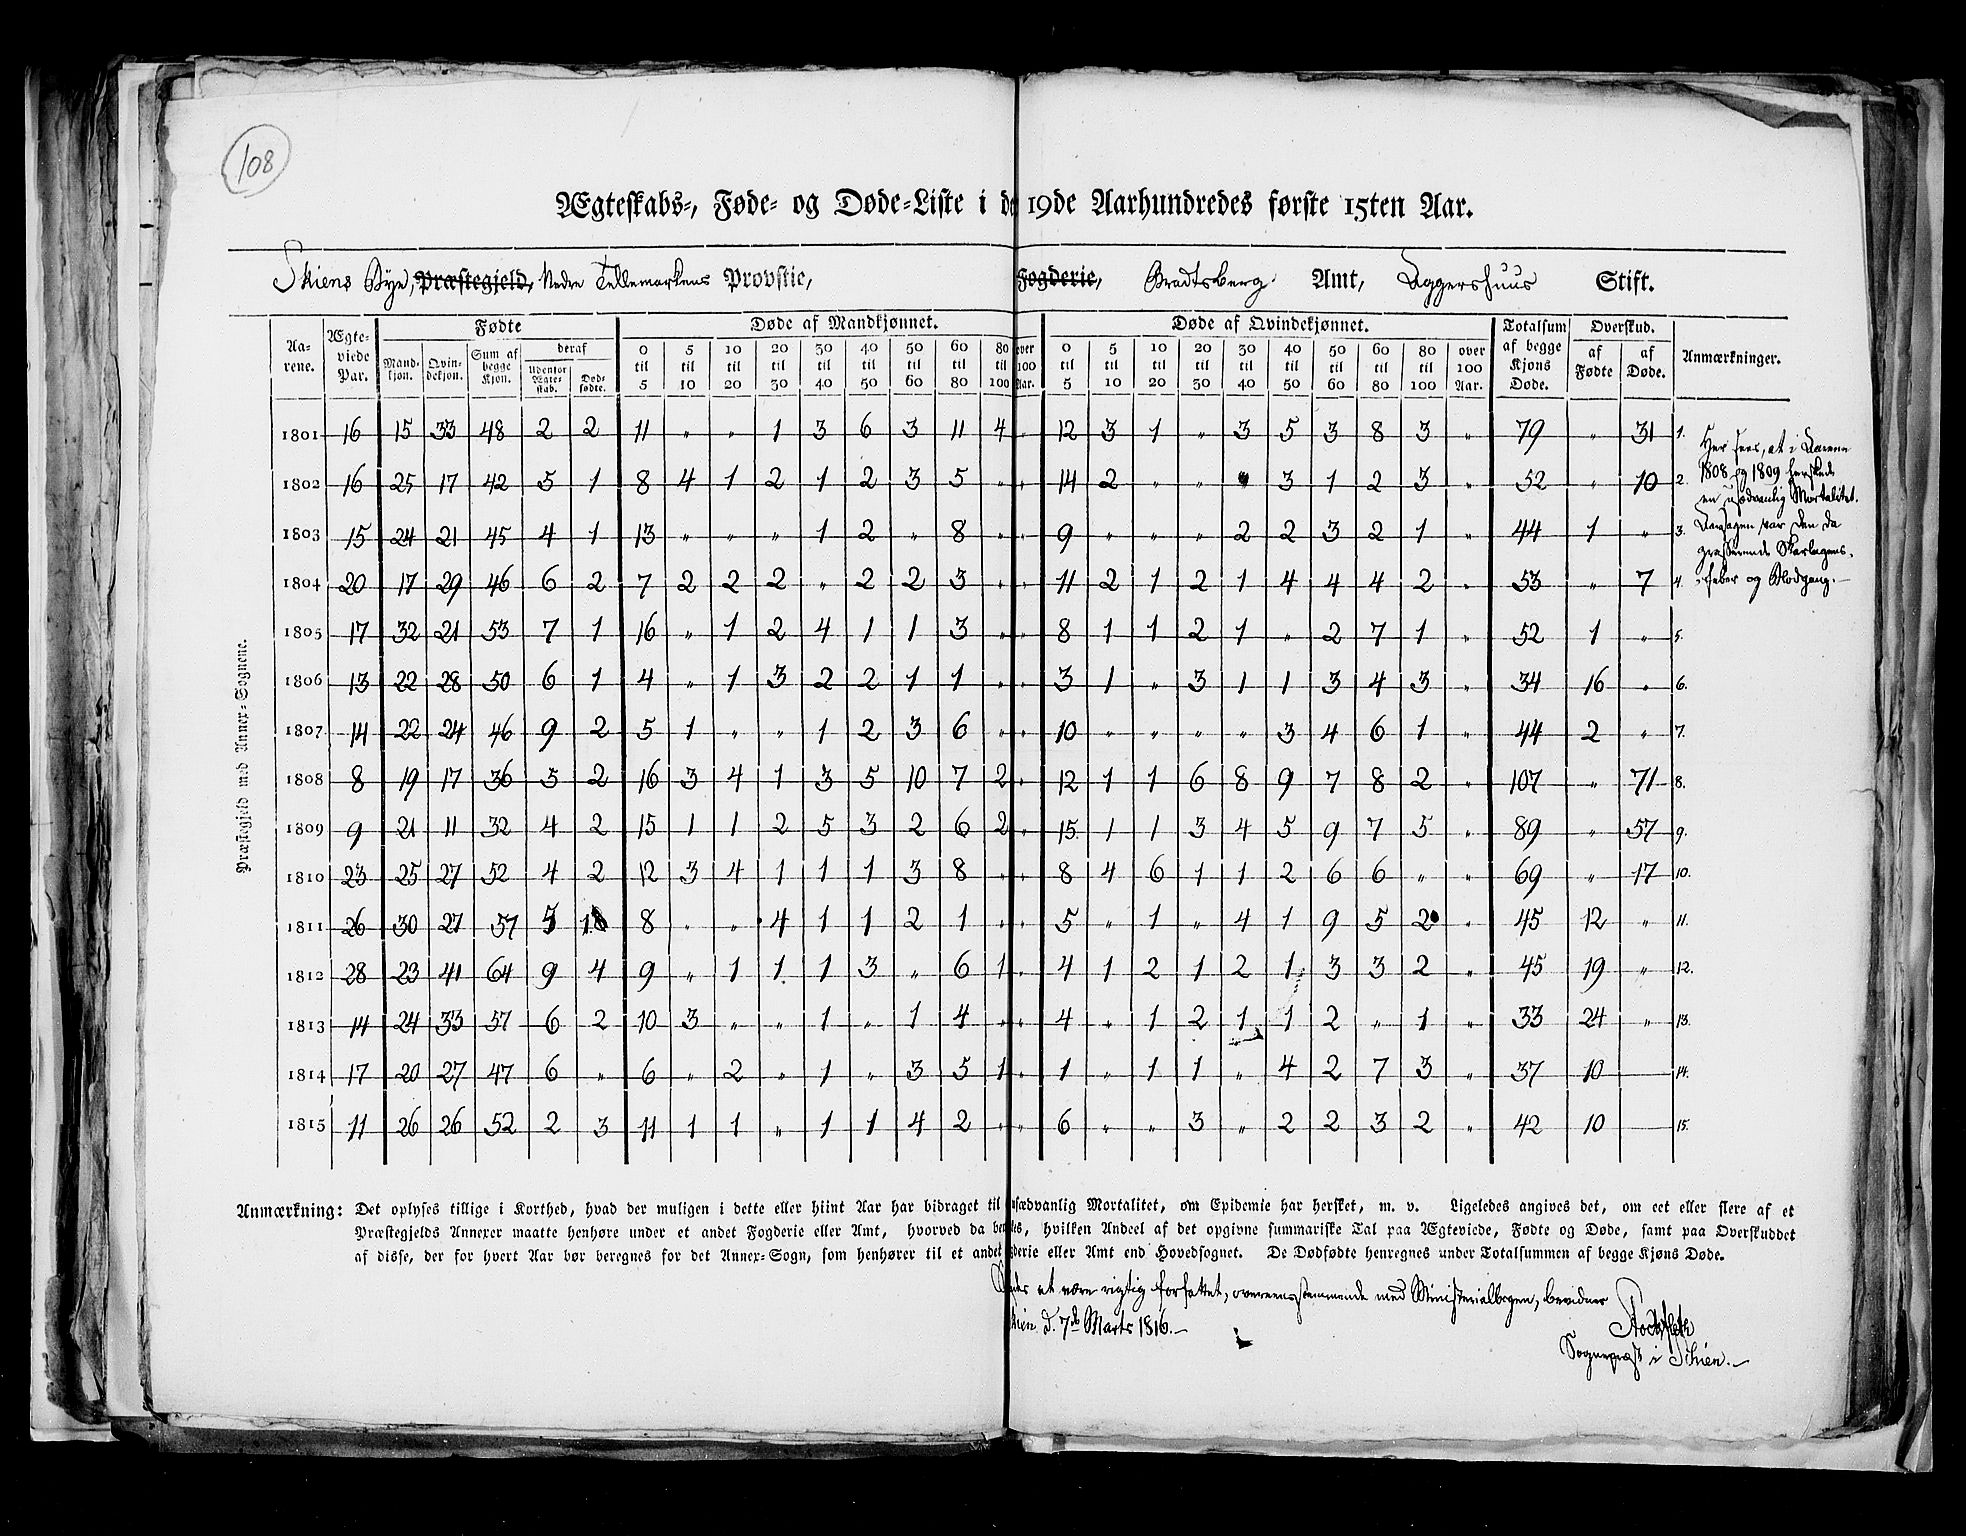 108
Ægteskabs-, Føde- og Døde-Liste i de 19de Aarhundredes første 15ten Aar.
Skiens Bye, Præstegjeld, Nedre Tellemarkens Provstie, Fogderie, Bradtsberg Amt, Aggershuus Stift.
Præstegjeld med Annex-Sognene.
Aarene. | Ægteviede Par. | Fødte | Døde af Mandkjønnet. | Døde af Qvindekjønnet. | Totalsum af begge Kjøns Døde. | Overskud. | Anmærkninger.
Mandkjøn. | Qvindekjøn. | Sum af begge Kjøn. | deraf | Udenfor Ægteskab. | Dødfødte. | 0 til 5 | 5 til 10 | 10 til 20 | 20 til 30 | 30 til 40 | 40 til 50 | 50 til 60 | 60 til 80 | 80 til 100 | over 100 Aar. | 0 til 5 | 5 til 10 | 10 til 20 | 20 til 30 | 30 til 40 | 40 til 50 | 50 til 60 | 60 til 80 | 80 til 100 | over 100 Aar. | af Fødte | af Døde.
1801 16 15 33 48 2 2 11 „ „ 1 3 6 3 11 4 „ 12 3 1 „ 3 5 3 8 3 „ 79 „ 31 1.
1802 16 25 17 42 5 1 8 4 1 2 1 2 3 5 „ „ 14 2 „ „ 3 1 2 3 „ 52 „ 10 2.
1803 15 24 21 45 4 1 13 „ „ „ 1 2 „ 8 „ „ 9 „ „ „ 2 2 3 2 1 „ 44 1 „ 3.
1804 20 17 29 46 6 2 7 2 2 2 „ 2 2 3 „ „ 11 2 1 2 1 4 4 4 2 „ 53 „ 7 4.
1805 17 32 21 53 7 1 16 „ 1 2 4 1 1 3 „ „ 8 1 1 2 1 „ 2 7 1 „ 52 1 „ 5.
1806 13 22 28 50 6 1 4 „ 1 3 2 2 1 1 „ „ 3 1 „ 3 1 1 3 4 3 „ 34 16 „ 6.
1807 14 22 24 46 9 2 5 1 „ „ 1 2 3 6 „ „ 10 „ „ „ „ 3 4 6 1 „ 44 2 „ 7.
1808 8 19 17 36 5 2 16 3 4 1 3 5 10 7 2 „ 12 1 1 6 8 9 7 8 2 „ 107 „ 71 8.
1809 9 21 11 32 4 2 15 1 1 2 5 3 2 6 2 „ 15 1 1 3 4 5 9 7 5 „ 89 „ 57 9.
1810 23 25 27 52 4 2 12 3 4 1 1 1 3 8 „ „ 8 4 6 1 1 2 6 6 „ „ 69 „ 17 10.
1811 26 30 27 57 5 8 „ „ 4 1 1 2 1 „ „ 5 „ 1 „ 4 1 9 5 2 „ 45 12 „ 11.
1812 28 23 41 64 9 4 9 „ 1 1 1 3 „ 6 1 „ 4 1 2 1 2 1 3 3 2 „ 45 19 „ 12.
1813 14 24 33 57 6 2 10 3 „ „ 1 „ 1 4 „ „ 4 „ 1 2 1 1 2 „ 1 „ 33 24 „ 13.
1814 17 20 27 47 6 „ 6 „ 2 „ 1 „ 3 5 1 „ 1 „ 1 1 „ 4 2 7 3 „ 37 10 14.
1815 11 26 26 52 2 3 11 1 1 „ 1 1 4 2 „ „ 6 „ „ 3 „ 2 2 3 2 „ 42 10 15.
Her sees, at i Aarene
1808 og 1809 herskede
en usædvanlig Mortalitet.
Aarsagen var den da
grasserende Skarlagens-
feber og Blodgang.
Anmærkning: Det oplyses tillige i Korthed, hvad der muligen i dette eller hiint Aar har bidraget til usædvanlig Mortalitet, om Epidemie har hersket, m. v. Ligeledes angives det, om eet eller flere af et
Præstegjelds Annexer maatte henhøre under et andet Fogderie eller Amt, hvorved da hvilken Andeel af det opgivne summariske Tal paa Ægteviede, Fødte og Døde, samt paa Overskuddet
af disse, der for hvert Aar bør beregnes for det Annex-Sogn, som henhører til et andet Fogderie eller Amt end Hovedsognet. De Dødfødte henregnes under Totalsummen af begge Kjøns Døde.
at være rigtig forfattet, overeensstemmende med Ministerialbogen, bevidner
Skien d. 7de Marts 1816.
Stockfleth
Sognepræst i Skien.